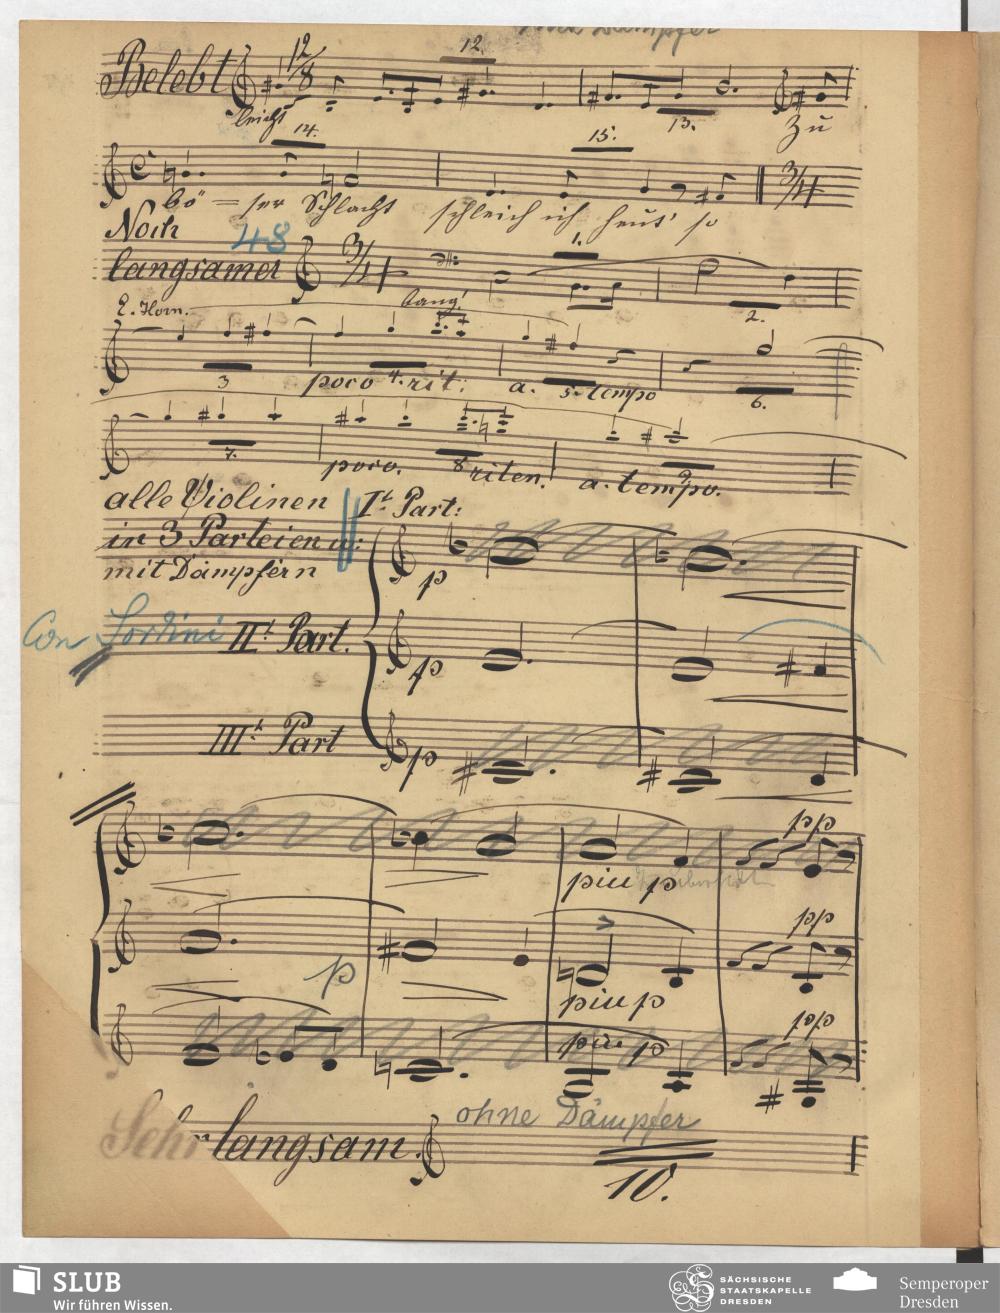 Dämpfer
Belebt 12/8 12.
leicht 13. Zu
14. 15.
C 3/4
bö = ser Schlacht schleich ich heut' so
Noch 48
langsamer 3/4 1.
E. Horn. bang! 2.
3 poco 4. rit: a. 5. tempo 6.
7. poco. 8 riten. a. tempo. 9.
alle Violinen It Part:
in 3 Parteien
mit Dämpfern p
Con Sordini IIt Part. p
IIIt Part p
pp
piu p
pp
p piu p
pp
piu p
ohne Dämpfer
Sehr langsam. 10.
SLUB
Wir führen Wissen.
SÄCHSISCHE
STAATSKAPELLE
DRESDEN
Semperoper
Dresden